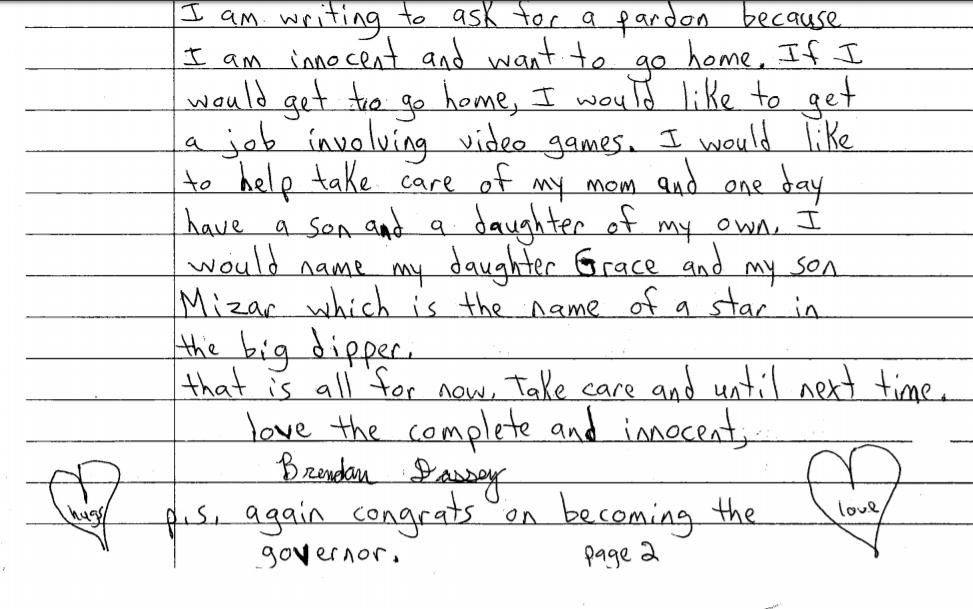 I am writing to ask for a pardon because
I am innocent and want to go home. If I
would get to go home, I would like to get
a job involving video games. I would like
to help take care of my mom and one day
have a son and a daughter of my own. I
would name my daughter Grace and my son
Mizar which is the name of a star in
the big dipper.
that is all for now. Take care and until next time.
love the complete and innocent,
Brendan Dassey
hugs
love
p.s. again congrats on becoming the
governor.
page 2